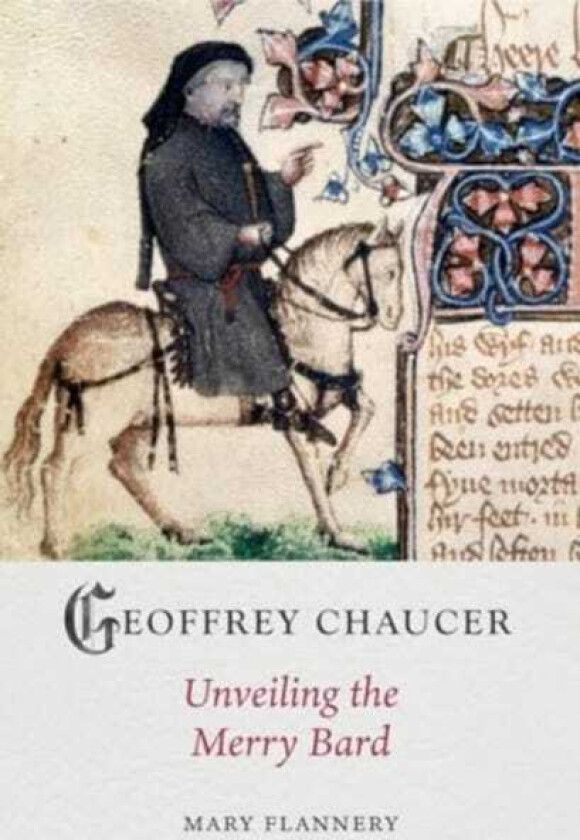 Heere
his wyf and
the dores
and setten
been entred
fyue morta
hir feet. in
and softe
GEOFFREY CHAUCER
Unveiling the
Merry Bard
MARY FLANNERY